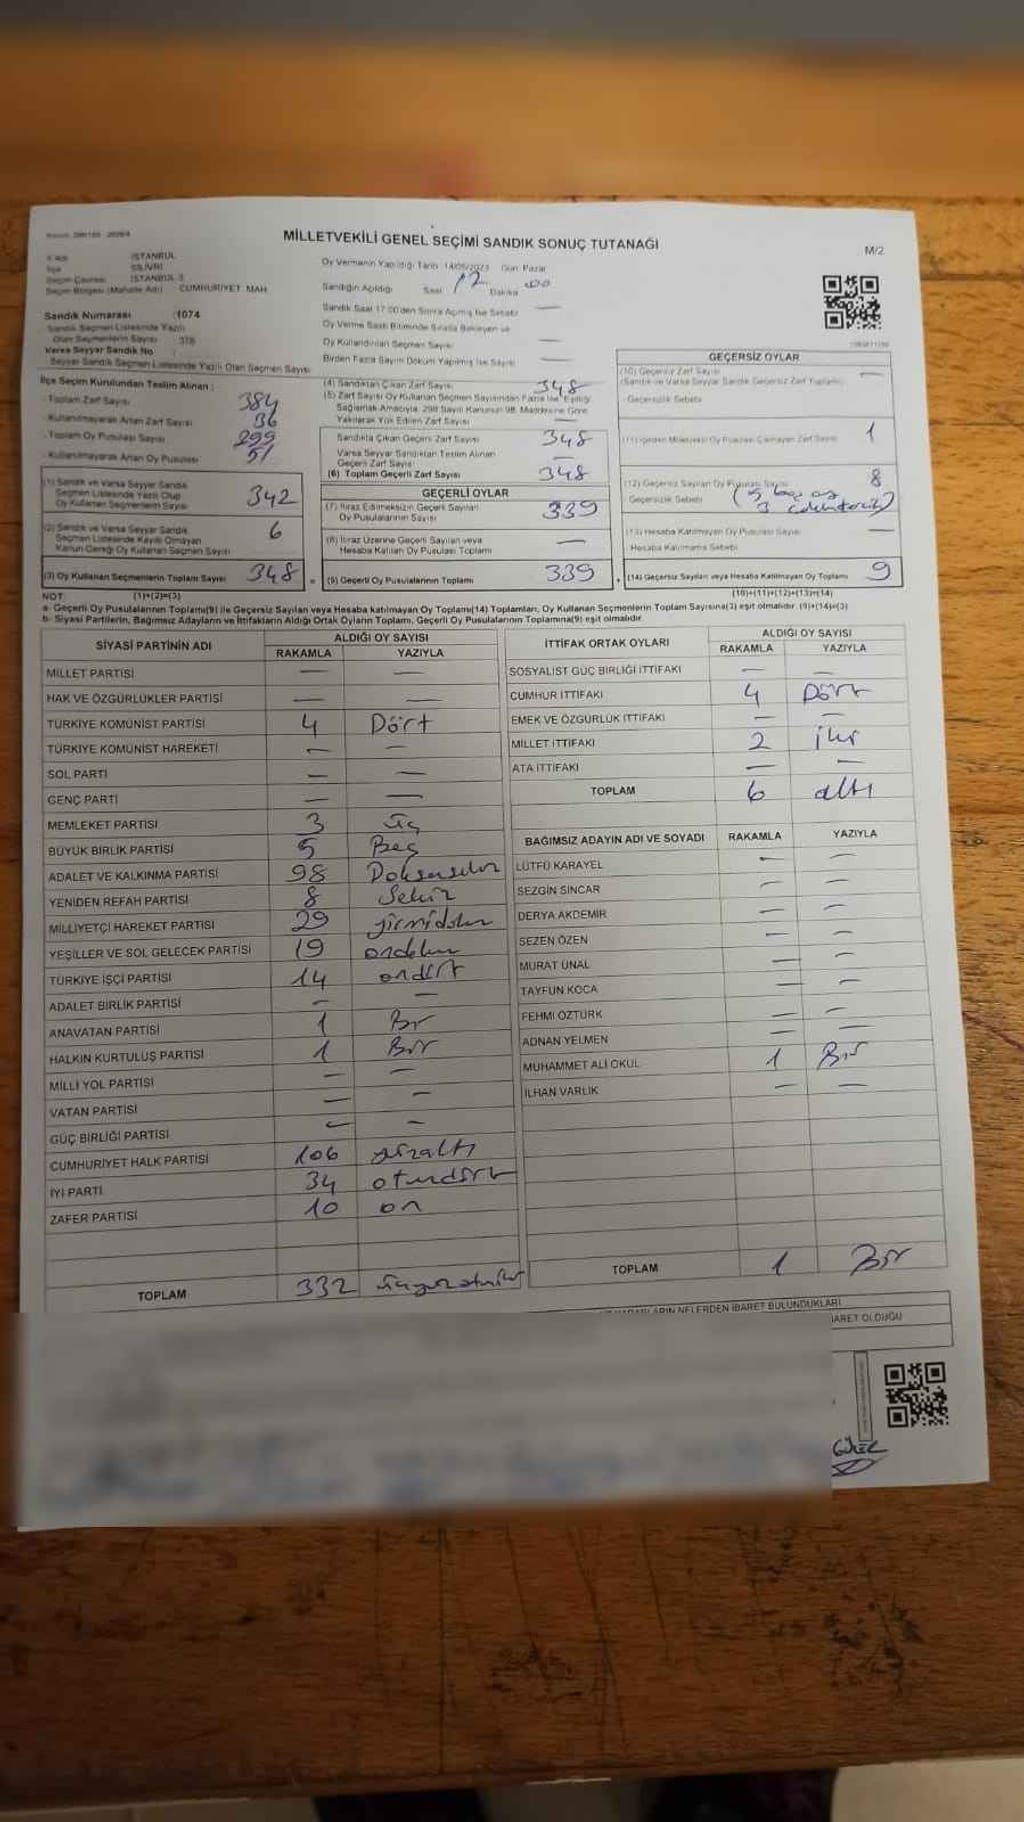 MİLLETVEKİLİ GENEL SEÇİMİ SANDIK SONUÇ TUTANAĞI
M/2
İSTANBUL
SİLİVRİ
İSTANBUL 3
Seçim Bölgesi (Mahalle Adı) CUMHURİYET MAH
Sandık Numarası :1074
Sandık Seçmen Listesinde Yazılı
Olan Seçmenlerin Sayısı 378
Varsa Seyyar Sandık No
Seyyar Sandık Seçmen Listesinde Yazılı Olan Seçmen Sayısı
Oy Vermenin Yapıldığı Tarih 14/05/2023 Gün Pazar
Sandığın Açıldığı Saat 12 Dakika 00
Sandık Saat 17:00'den Sonra Açılmış İse Sebebi —
Oy Verme Saati Bitiminde Sırada Bekleyen ve
Oy Kullandırılan Seçmen Sayısı —
Birden Fazla Sayım Döküm Yapılmış İse Sayısı —
İlçe Seçim Kurulundan Teslim Alınan :
- Toplam Zarf Sayısı 384
- Kullanılmayarak Artan Zarf Sayısı 36
- Toplam Oy Pusulası Sayısı 299
- Kullanılmayarak Artan Oy Pusulası 51
(1) Sandık ve Varsa Seyyar Sandık
Seçmen Listesinde Yazılı Olup
Oy Kullanan Seçmenlerin Sayısı 342
(2) Sandık ve Varsa Seyyar Sandık
Seçmen Listesinde Kayıtlı Olmayan
Kanun Gereği Oy Kullanan Seçmen Sayısı 6
(3) Oy Kullanan Seçmenlerin Toplam Sayısı 348
(4) Sandıktan Çıkan Zarf Sayısı 348
(5) Zarf Sayısı Oy Kullanan Seçmen Sayısından Fazla İse, Eşitliği
Sağlamak Amacıyla 298 Sayılı Kanunun 98. Maddesine Göre
Yakılarak Yok Edilen Zarf Sayısı —
Sandıkta Çıkan Geçerli Zarf Sayısı 348
Varsa Seyyar Sandıktan Teslim Alınan
Geçerli Zarf Sayısı —
(6) Toplam Geçerli Zarf Sayısı 348
GEÇERLİ OYLAR
(7) İtiraz Edilmeksizin Geçerli Sayılan
Oy Pusulalarının Sayısı 339
(8) İtiraz Üzerine Geçerli Sayılan veya
Hesaba Katılan Oy Pusulası Toplamı —
(9) Geçerli Oy Pusulalarının Toplamı 339
GEÇERSİZ OYLAR
(10) Geçersiz Zarf Sayısı
(Sandık ve Varsa Seyyar Sandık Geçersiz Zarf Toplamı) —
Geçersizlik Sebebi
(11) İçinden Milletvekili Oy Pusulası Çıkmayan Zarf Sayısı 1
(12) Geçersiz Sayılan Oy Pusulası Sayısı 8
Geçersizlik Sebebi
(13) Hesaba Katılmayan Oy Pusulası Sayısı —
Hesaba Katılmama Sebebi
(14) Geçersiz Sayılan veya Hesaba Katılmayan Oy Toplamı 9
NOT: (1)+(2)=(3)
(10)+(11)+(12)+(13)=(14)
a- Geçerli Oy Pusulalarının Toplamı(9) ile Geçersiz Sayılan veya Hesaba katılmayan Oy Toplamı(14) Toplamları, Oy Kullanan Seçmenlerin Toplam Sayısına(3) eşit olmalıdır. (9)+(14)=(3)
b- Siyasi Partilerin, Bağımsız Adayların ve İttifakların Aldığı Ortak Oyların Toplamı, Geçerli Oy Pusulalarının Toplamına(9) eşit olmalıdır
SİYASİ PARTİNİN ADI ALDIĞI OY SAYISI
RAKAMLA YAZIYLA
MİLLET PARTİSİ — —
HAK VE ÖZGÜRLÜKLER PARTİSİ — —
TÜRKİYE KOMÜNİST PARTİSİ 4 Dört
TÜRKİYE KOMÜNİST HAREKETİ — —
SOL PARTİ — —
GENÇ PARTİ — —
MEMLEKET PARTİSİ 3 üç
BÜYÜK BİRLİK PARTİSİ 5 Beş
ADALET VE KALKINMA PARTİSİ 98 Doksansekiz
YENİDEN REFAH PARTİSİ 8 Sekiz
MİLLİYETÇİ HAREKET PARTİSİ 29 yirmidokuz
YEŞİLLER VE SOL GELECEK PARTİSİ 19 ondokuz
TÜRKİYE İŞÇİ PARTİSİ 14 ondört
ADALET BİRLİK PARTİSİ — —
ANAVATAN PARTİSİ 1 Bir
HALKIN KURTULUŞ PARTİSİ 1 Bir
MİLLİ YOL PARTİSİ — —
VATAN PARTİSİ — —
GÜÇ BİRLİĞİ PARTİSİ — —
CUMHURİYET HALK PARTİSİ 106 yüzaltı
İYİ PARTİ 34 otuzdört
ZAFER PARTİSİ 10 on
TOPLAM 332 üçyüzotuziki
İTTİFAK ORTAK OYLARI ALDIĞI OY SAYISI
RAKAMLA YAZIYLA
SOSYALİST GÜÇ BİRLİĞİ İTTİFAKI — —
CUMHUR İTTİFAKI 4 Dört
EMEK VE ÖZGÜRLÜK İTTİFAKI — —
MİLLET İTTİFAKI 2 iki
ATA İTTİFAKI — —
TOPLAM 6 altı
BAĞIMSIZ ADAYIN ADI VE SOYADI RAKAMLA YAZIYLA
LÜTFÜ KARAYEL — —
SEZGİN SİNCAR — —
DERYA AKDEMİR — —
SEZEN ÖZEN — —
MURAT ÜNAL — —
TAYFUN KOCA — —
FEHMİ ÖZTÜRK — —
ADNAN YELMEN — —
MUHAMMET ALİ OKUL 1 Bir
İLHAN VARLIK — —
TOPLAM 1 Bir
NELERDEN İBARET BULUNDUKLARI
İBARET OLDUĞU